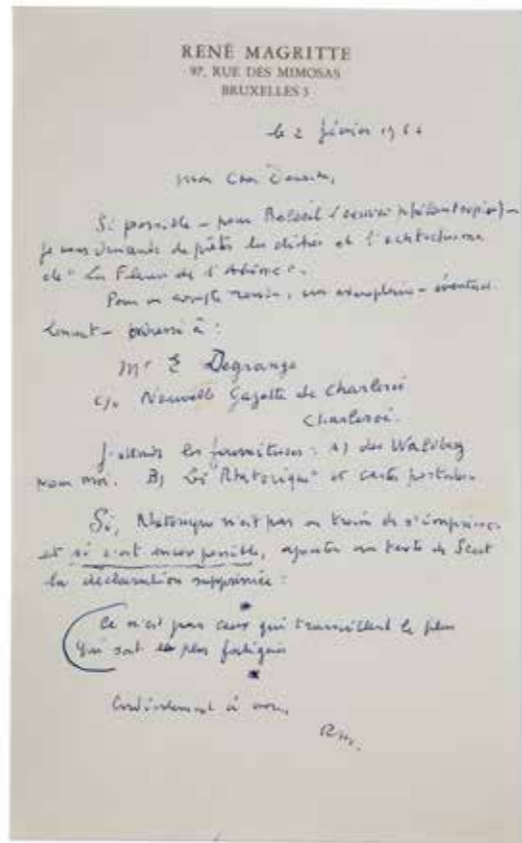 RENÉ MAGRITTE
97, RUE DES MIMOSAS
BRUXELLES 3
le 2 février 196
Mon Cher
Si possible — pour
je vous demande de prêter les clichés et l'
de "La Fleur de l'
Pour un compte rendu, un exemplaire — éventuel
lement — adressé à :
Mr E Degrange
c/o Nouvelle Gazette de Charleroi
Charleroi.
J'attends les fournitures : A) des Waldberg
pour moi. B) La "Rhétorique" et cartes postales.
Si, Rhétorique n'est pas en train de s'imprimer
et si c'est encore possible, ajouter au texte de Scut
la déclaration supprimée :
Ce n'est pas ceux qui travaillent le plus
qui sont les plus fatigués
Cordialement à vous,